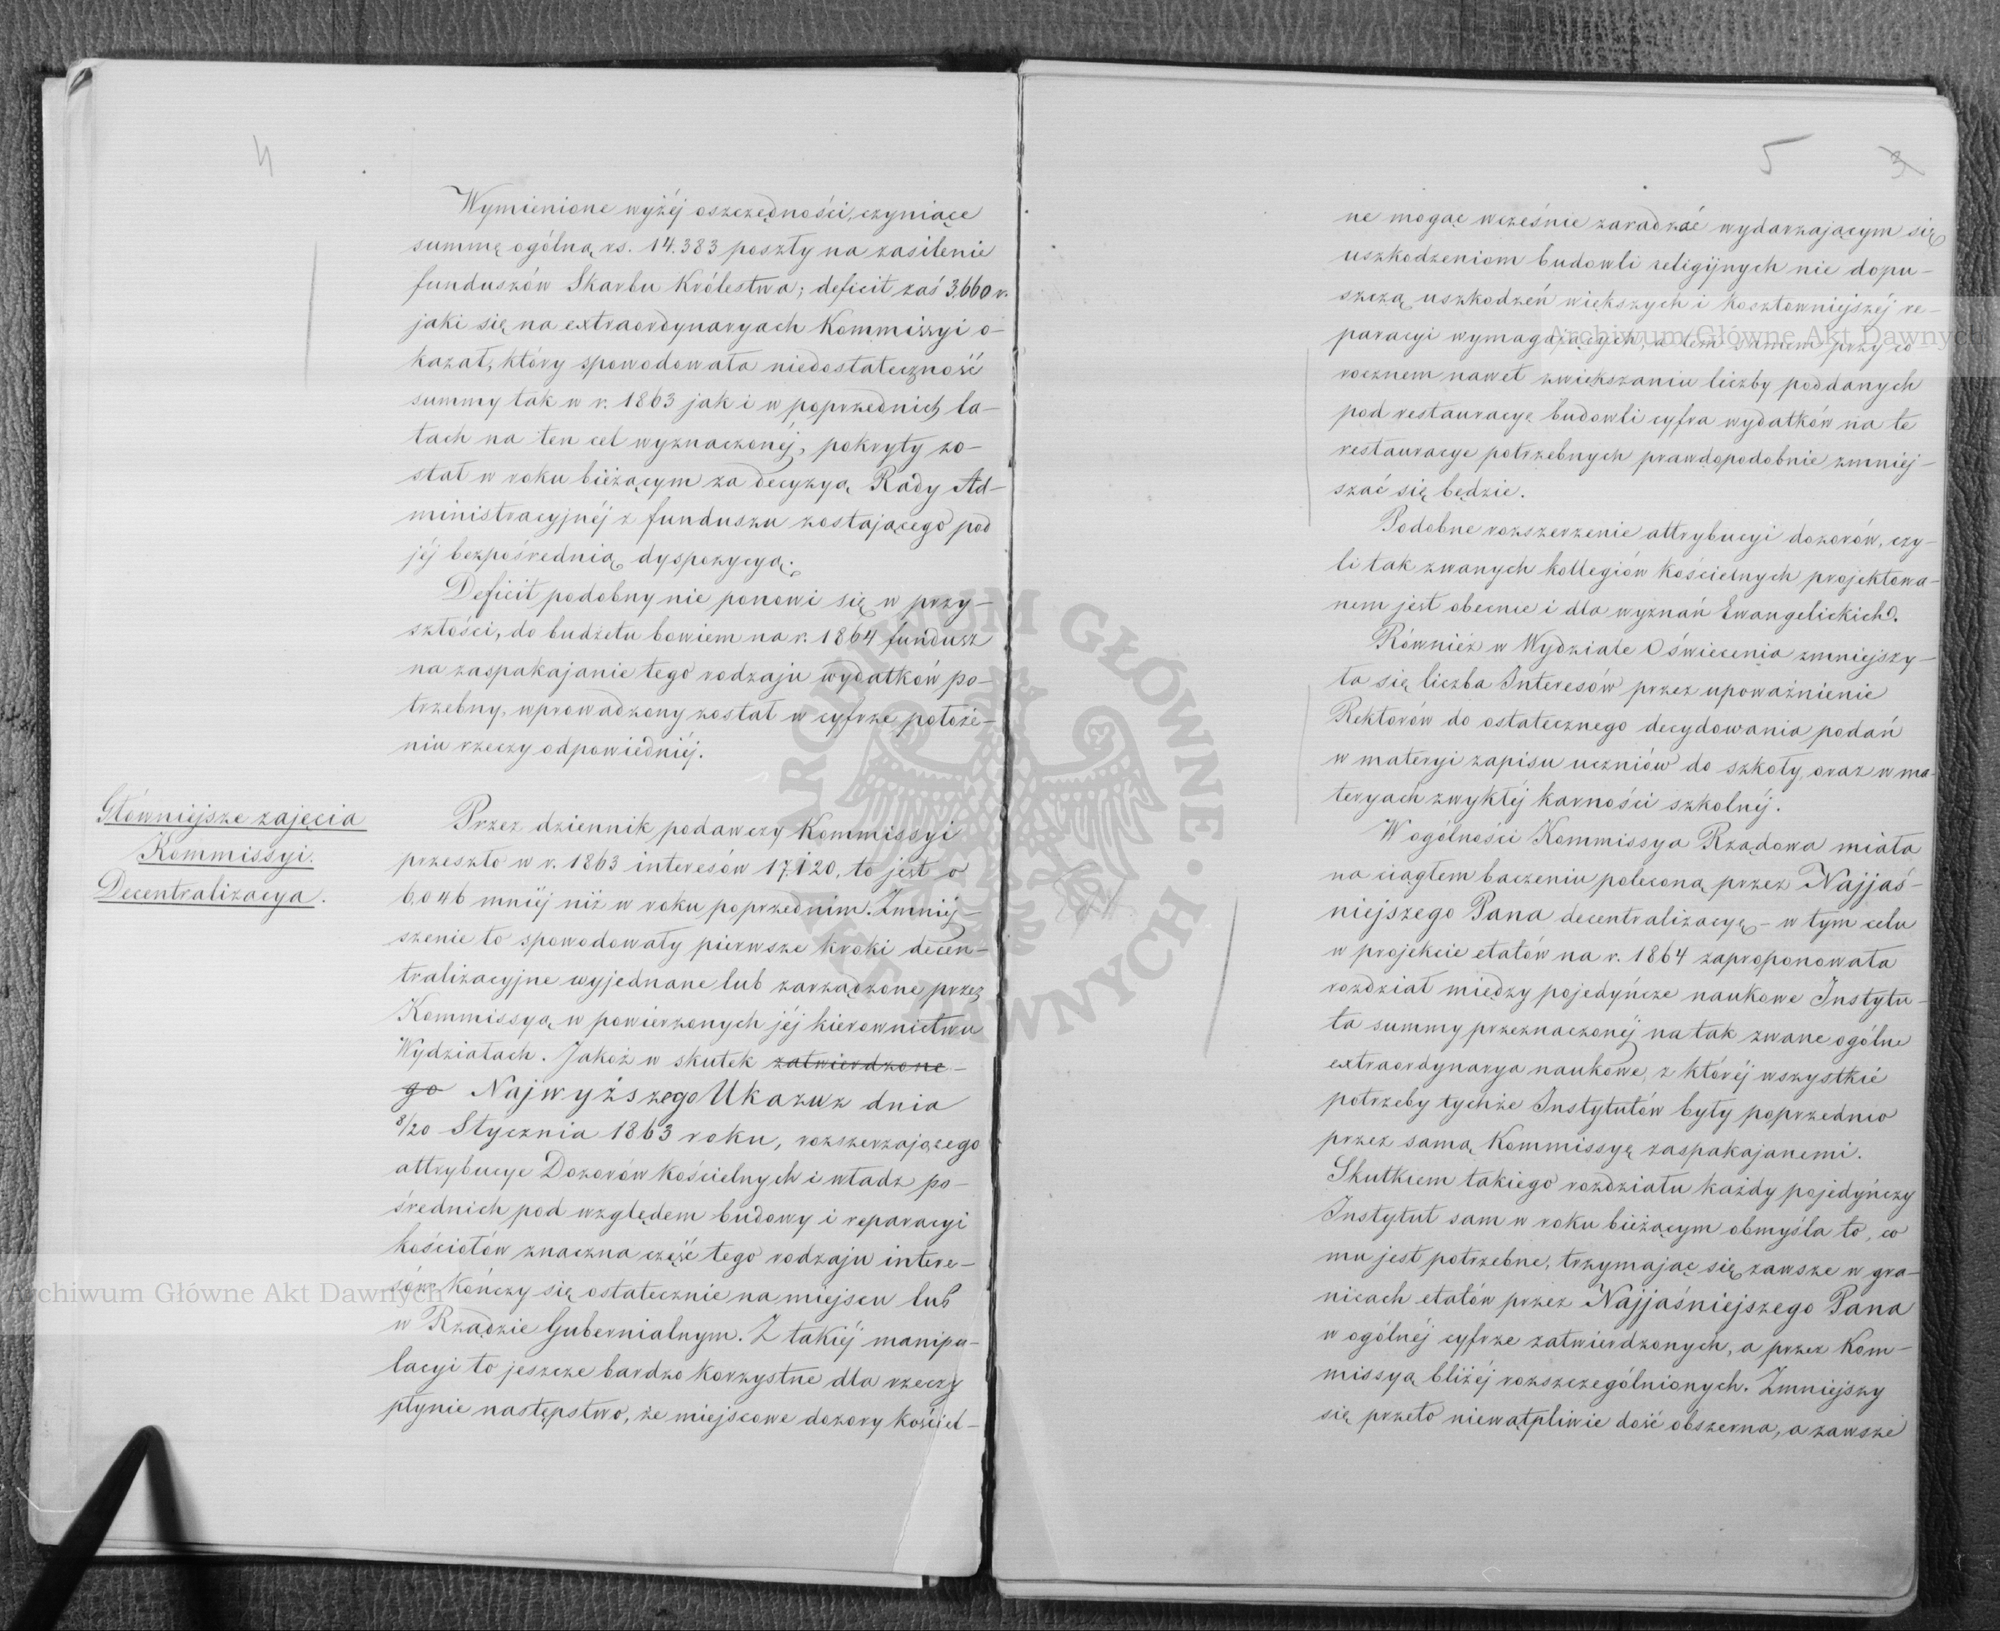 4
Wymienione wyżéj oszczędności, czyniące
summę ogólną rs. 14.383 poszły na zasilenie
funduszów Skarbu Królestwa; deficit zaś 3,660 r.
jaki się na extraordynaryach Kommissyi o-
kazał, który spowodowała niedostateczność
summy tak w r. 1863 jak i w poprzednich la-
tach na ten cel wyznaczonéj, pokryty zo-
stał w roku bieżącym za decyzyą Rady Ad-
ministracyjnéj z funduszu zostającego pod
jéj bezpośrednią dyspozycyą.
Deficit podobny nie ponowi się w przy-
szłości, do budżetu bowiem na r. 1864 fundusz
na zaspakajanie tego rodzaju wydatków po-
trzebny, wprowadzony został w cyfrze położe-
niu rzeczy odpowiedniéj.
Główniejsze zajęcia
Kommissyi.
Decentralizacya.
Przez dziennik podawczy Kommissyi
przeszło w r. 1863 interesów 17,120, to jest o
6,046 mniéj niż w roku poprzednim. Zmniéj-
szenie to spowodowały pierwsze kroki decen-
tralizacyjne wyjednane lub zarządzone przez
Kommissyą w powierzonych jéj kierownictwu
Wydziałach. Jakoż w skutek zatwierdzone-
go Najwyższego Ukazu z dnia
8/20 Stycznia 1863 roku, rozszerzającego
attrybucye Dozorów kościelnych i władz po-
średnich pod względem budowy i reparacyi
kościołów znaczna część tego rodzaju intere-
sów kończy się ostatecznie na miejscu lub
w Rządzie Gubernialnym. Z takiéj manipu-
lacyi to jeszcze bardzo korzystne dla rzeczy
płynie następstwo, że miejscowe dozory kościel-
5 3
ne mogąc wcześnie zaradzać wydarzającym się
uszkodzeniom budowli religijnych nie dopu-
szczą uszkodzeń większych i kosztowniejszéj re-
paracyi wymagających, a tem samem przy co-
rocznem nawet zwiększaniu liczby poddanych
pod restauracyę budowli cyfra wydatków na te
restauracye potrzebnych prawdopodobnie zmniej-
szać się będzie.
Podobne rozszerzenie attrybucyi dozorów, czy-
li tak zwanych kollegiów kościelnych projektowa-
nem jest obecnie i dla wyznań Ewangelickich.
Również w Wydziale Oświecenia zmniejszy-
ła się liczba Interesów przez upoważnienie
Rektorów do ostatecznego decydowania podań
w materyi zapisu uczniów do szkoły, oraz w ma-
teryach zwykłéj karności szkolnéj.
W ogólności Kommissya Rządowa miała
na ciągłem baczeniu poleconą przez Najjaś-
niejszego Pana decentralizacyę – w tym celu
w projekcie etatów na r. 1864 zaproponowała
rozdział między pojedyńcze naukowe Instytu-
ta summy przeznaczonéj na tak zwane ogólne
extraordynarya naukowe, z któréj wszystkie
potrzeby tychże Instytutów były poprzednio
przez samą Kommissyę zaspakajanemi.
Skutkiem takiego rozdziału każdy pojedyńczy
Instytut sam w roku bieżącym obmyśla to, co
mu jest potrzebne, trzymając się zawsze w gra-
nicach etatów przez Najjaśniejszego Pana
w ogólnéj cyfrze zatwierdzonych, a przez Kom-
missyą bliżéj rozszczególnionych. Zmniejszy
się przeto niewątpliwie dość obszerna, a zawsze
Archiwum Główne Akt Dawnych
Archiwum Główne Akt Dawnych
ARCHIWUM GŁÓWNE AKT DAWNYCH